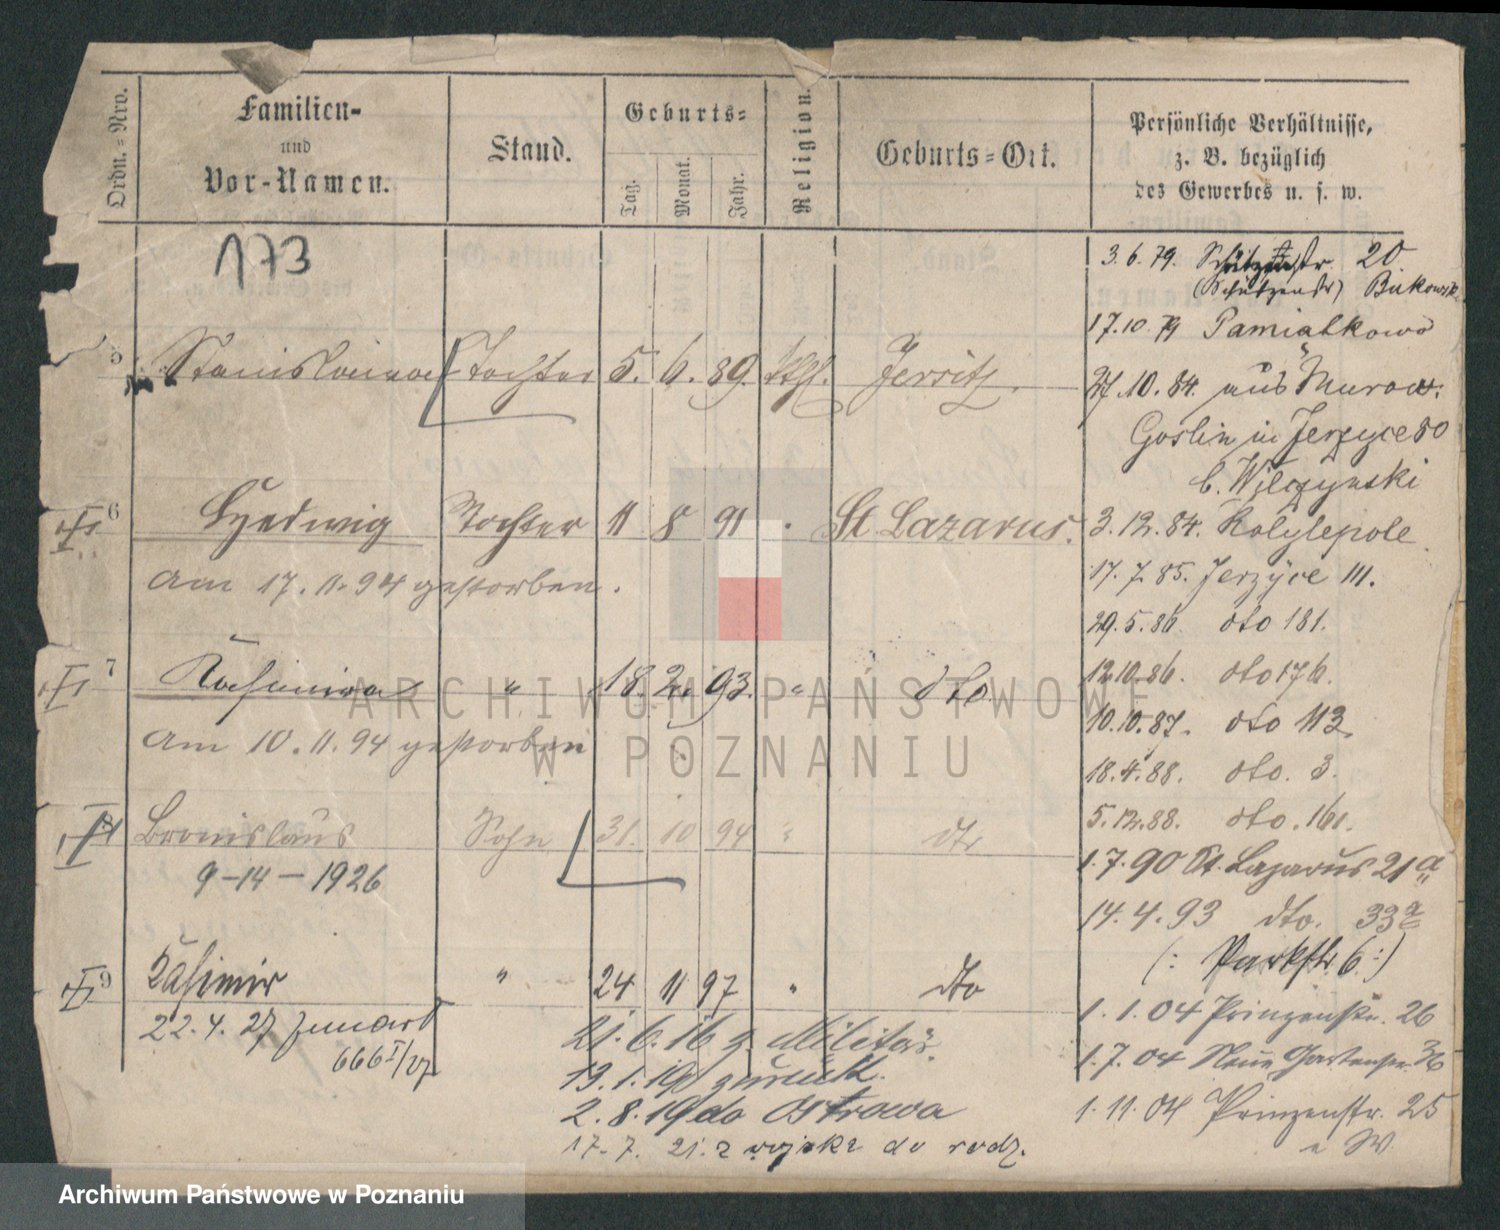 Ordn.=Nro.
Familien-
und
Vor-Namen.
Stand.
Geburts=
Tag.
Monat.
Jahr.
Religion.
Geburts=Ort.
Persönliche Verhältnisse,
z. B. bezüglich
des Gewerbes u. s. w.
173
5 Stanislawa Tochter 5. 6. 89. kth. Jersitz.
6 Hedwig Tochter 11 8 91 St. Lazarus.
am 17.11.94 gestorben.
7 Kasimira " 18. 2. 93. " dto
am 10.11.94 gestorben
8 Bronislaus Sohn 31. 10 94 " dto
9-14-1926
9 Kasimir " 24 11 97 " dto
22.4.27 zmarł
666 I/27
21.6.16 z. Militär.
13.1.19 zurück.
2.8.19 do Ostrowa
17.7.21. z wojska do rodz.
3.6.79. Schützenstr. 20
(Schützenstr)
17.10.79 Pamiątkowo
27.10.84. aus Murow.
Goslin in Jerzyce 80
b. Wilczynski
3.12.84. Kobylepole
17.7.85. Jerzyce 111.
29.5.86. dto 181.
12.10.86. dto 176.
10.10.87. dto 113.
18.4.88. dto. 3.
5.12.88. dto. 161.
1.7.90 St. Lazarus 21a
14.4.93 dto. 33a
(: Parkstr. 6 :)
1.1.04 Prinzenstr. 26
1.7.04 Neue Gartenstr. 36
1.11.04 Prinzenstr. 25
ARCHIWUM PAŃSTWOWE
W POZNANIU
Archiwum Państwowe w Poznaniu